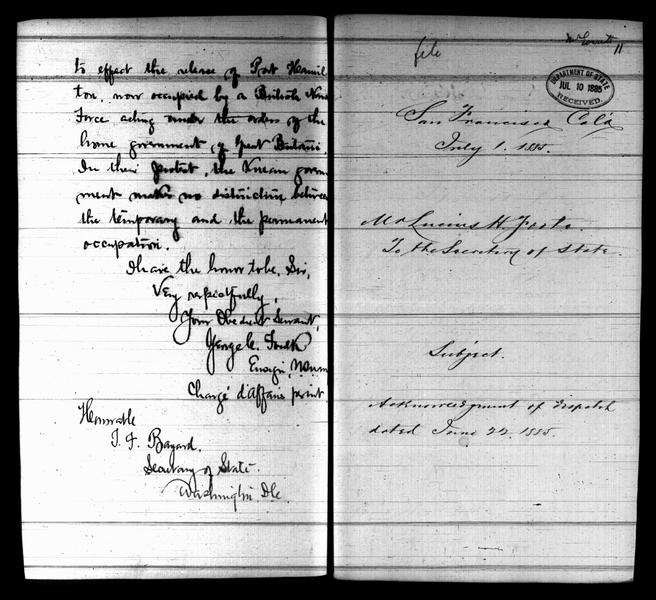 to effect the release of Port Hamil
ton, now occupied by a British Naval
Force acting under the orders of the
home government of Great Britain.
In their protest, the Korean govern
ment makes no distinction between
the temporary and the permanent
occupation.
I have the honor to be, Sir,
Very respectfully,
Your Obedient Servant,
George C. Foulk
Ensign,
Chargé d'affaires
Honorable
T. F. Bayard.
Secretary of State.
Washington. D.C.
file
11
DEPARTMENT OF STATE
JUL 10 1885
RECEIVED.
San Francisco Cal'a
July 1. 1885.
Mr Lucius H. Foote.
To the Secretary of State.
Subject.
Acknowledgment of Dispatch
dated June 22. 1885.